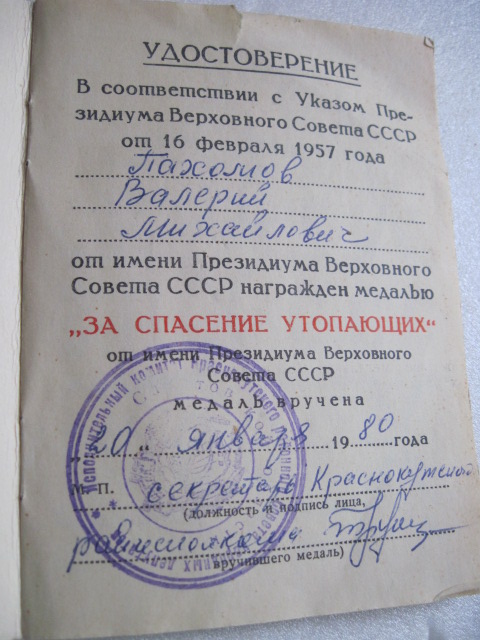 УДОСТОВЕРЕНИЕ
В соответствии с Указом Пре-
зидиума Верховного Совета СССР
от 16 февраля 1957 года
Пахомов
Валерий
Михайлович
от имени Президиума Верховного
Совета СССР награжден медалью
„ЗА СПАСЕНИЕ УТОПАЮЩИХ“
от имени Президиума Верховного
Совета СССР
медаль вручена
„20„ января 1980 года
М. П. секретарь Краснокутского
(должность и подпись лица,
райисполкома
вручившего медаль)
Исполнительный комитет Краснокутского районного Совета